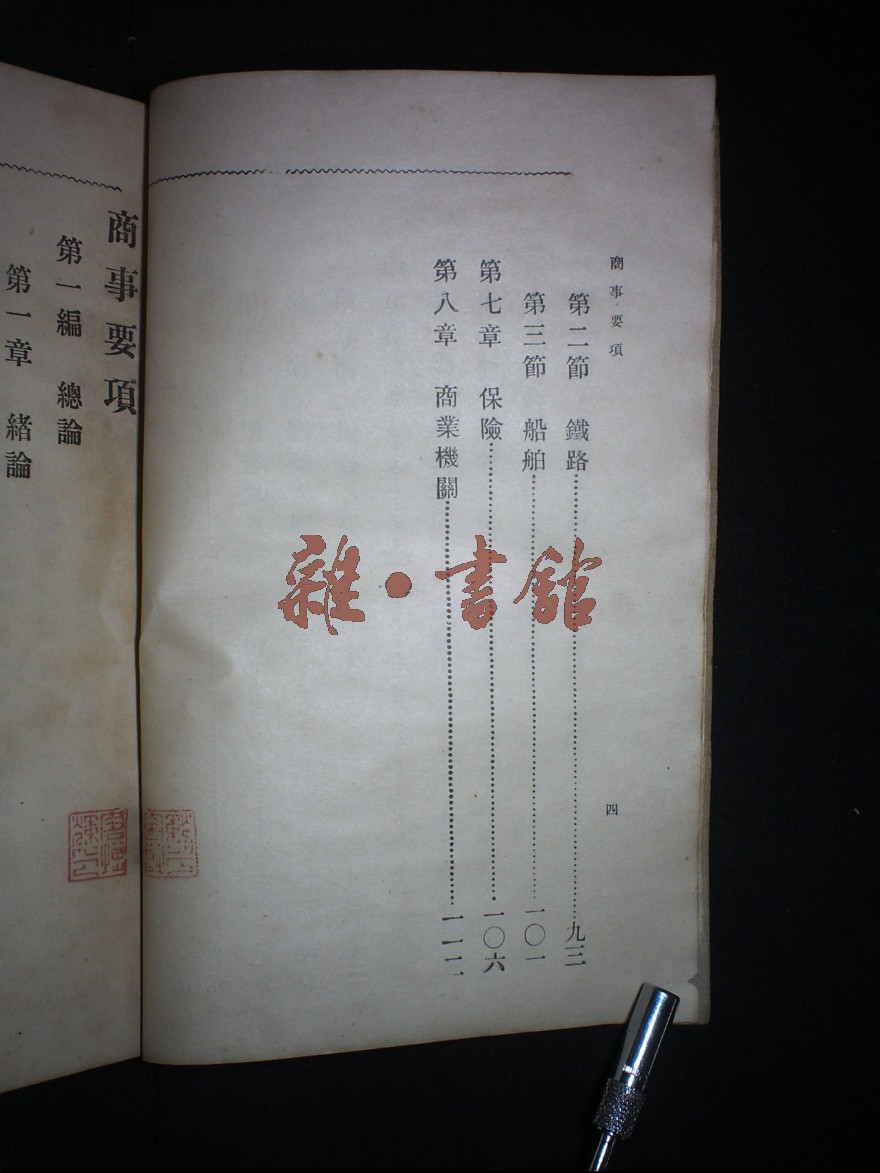 商事要項
四
第二節 鐵路……九三
第三節 船舶……一〇一
第七章 保險……一〇六
第八章 商業機關……一一二
商事要項
第一編 總論
第一章 緒論
雜·書館